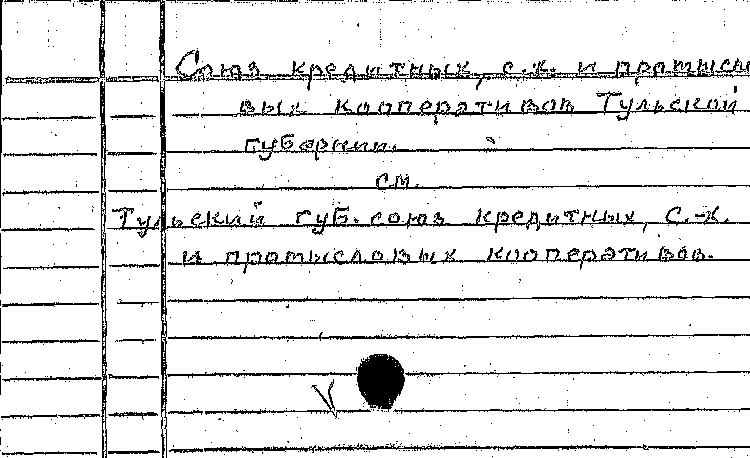 Союз кредитных, с.х. и промысло
вых кооперативов Тульской
губернии.
см.
Тульский губ. союз кредитных, с.-х.
и промысловых кооперативов.